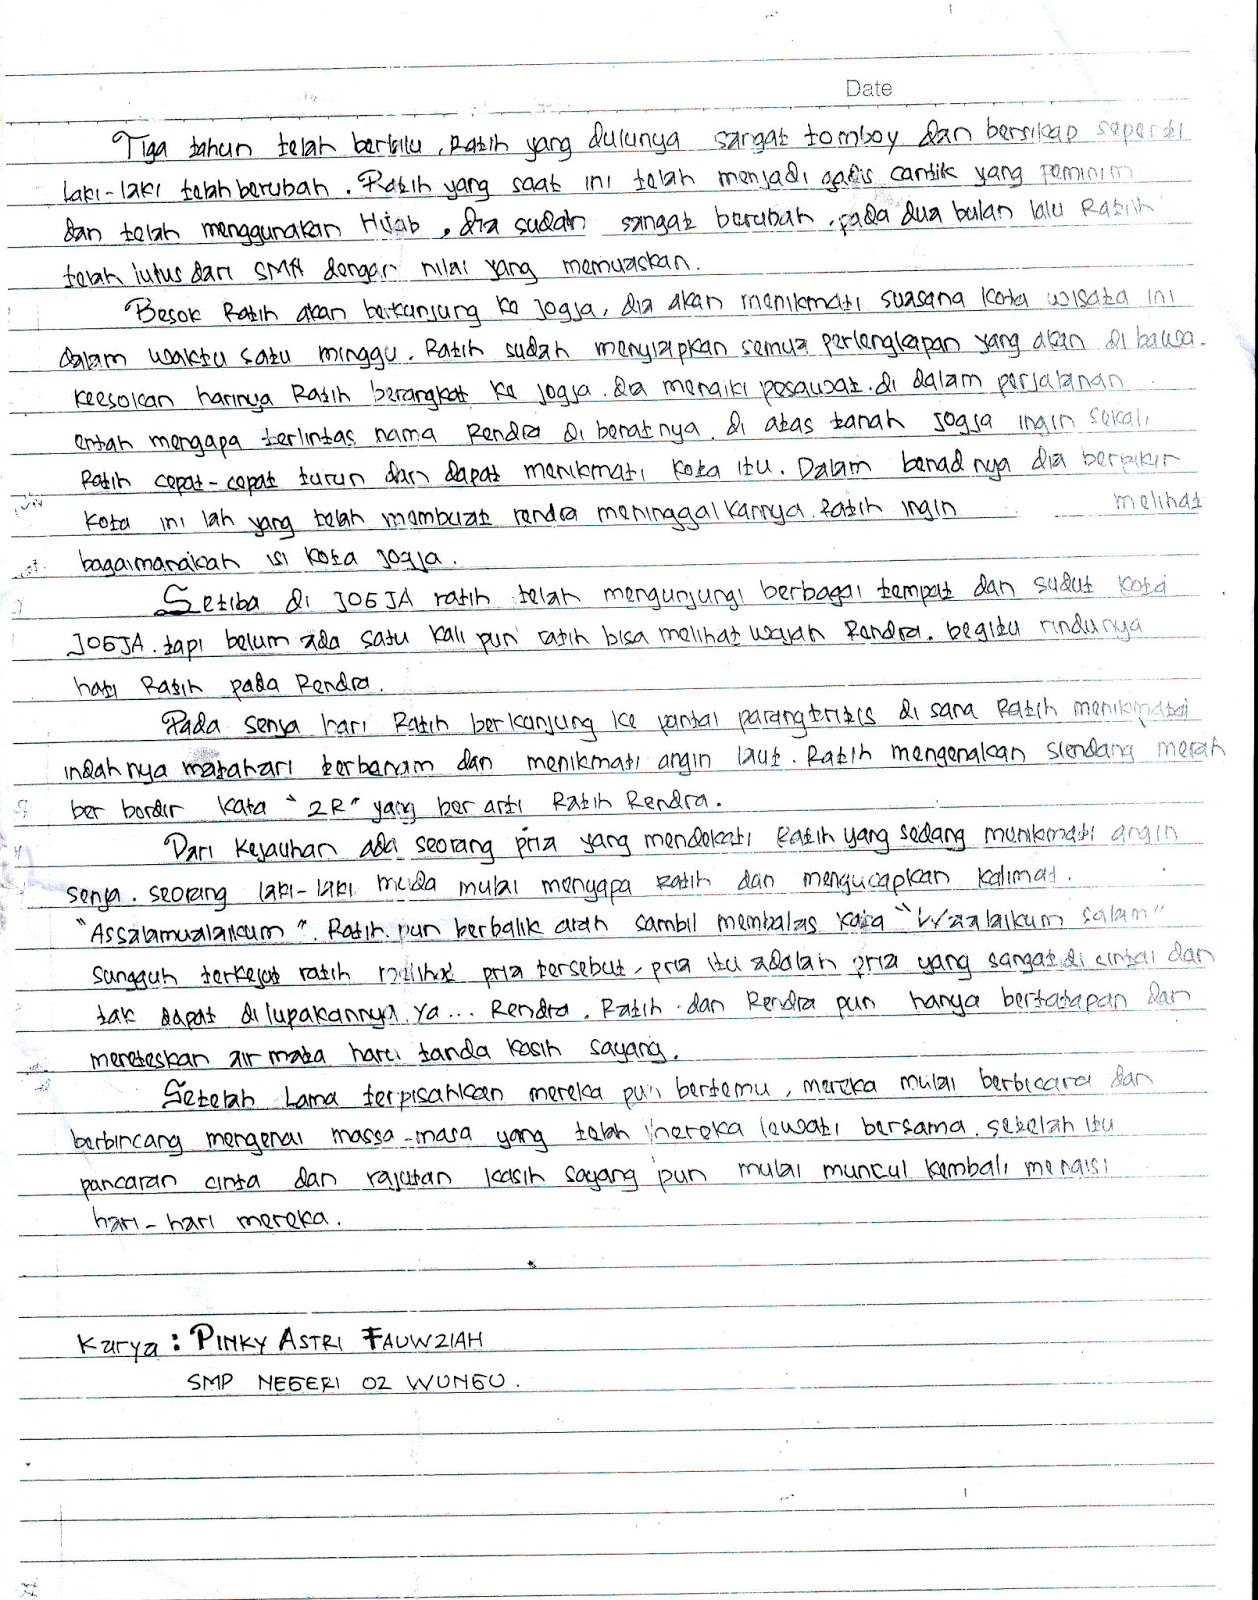 Date
Tiga tahun telah berlalu, Ratih yang dulunya sangat tomboy dan bersikap seperti
laki-laki telah berubah. Ratih yang saat ini telah menjadi gadis cantik yang feminim
dan telah menggunakan Hijab, dia sudah sangat berubah. pada dua bulan lalu Ratih
telah lulus dari SMA dengan nilai yang memuaskan.
Besok Ratih akan berkunjung ke jogja, dia akan menikmati suasana kota wisata ini
dalam waktu satu minggu. Ratih sudah menyiapkan semua perlengkapan yang akan di bawa.
keesokan harinya Ratih berangkat ke jogja. dia menaiki pesawat. di dalam perjalanan
entah mengapa terlintas nama Rendra di benatnya. di atas tanah jogja ingin sekali
Ratih cepat-cepat turun dan dapat menikmati kota itu. Dalam benad nya dia berpikir
kota ini lah yang telah membuat rendra meninggalkannya. Ratih ingin melihat
bagaimanakah isi kota jogja.
Setiba di JOGJA ratih telah mengunjungi berbagai tempat dan sudut kota
JOGJA. tapi belum ada satu kali pun ratih bisa melihat wajah Rendra. begitu rindunya
hati Ratih pada Rendra.
Pada senja hari Ratih berkunjung ke pantai parangtritis di sana Ratih menikmatai
indahnya matahari terbanam dan menikmati angin laut. Ratih mengenakan slendang merah
ber bordir kata "2R" yang ber arti Ratih Rendra.
Dari kejauhan ada seorang pria yang mendekati Ratih yang sedang menikmati angin
senja. seorang laki-laki muda mulai menyapa Ratih dan mengucapkan kalimat.
"Assalamualaikum". Ratih pun berbalik arah sambil membalas kata "Waalaikum salam"
Sungguh terkejut ratih melihat pria tersebut, pria itu adalah pria yang sangat di cintai dan
tak dapat di lupakannya. Ya... Rendra. Ratih dan Rendra pun hanya bertatapan dan
meneteskan air mata haru tanda kasih sayang.
Setelah Lama terpisahkan mereka pun bertemu, mereka mulai berbicara dan
berbincang mengenai massa-masa yang telah mereka lewati bersama. setelah itu
pancaran cinta dan rajutan kasih sayang pun mulai muncul kembali mengisi
hari-hari mereka.
Karya : PINKY ASTRI FAUWZIAH
SMP NEGERI 02 WUNGU.